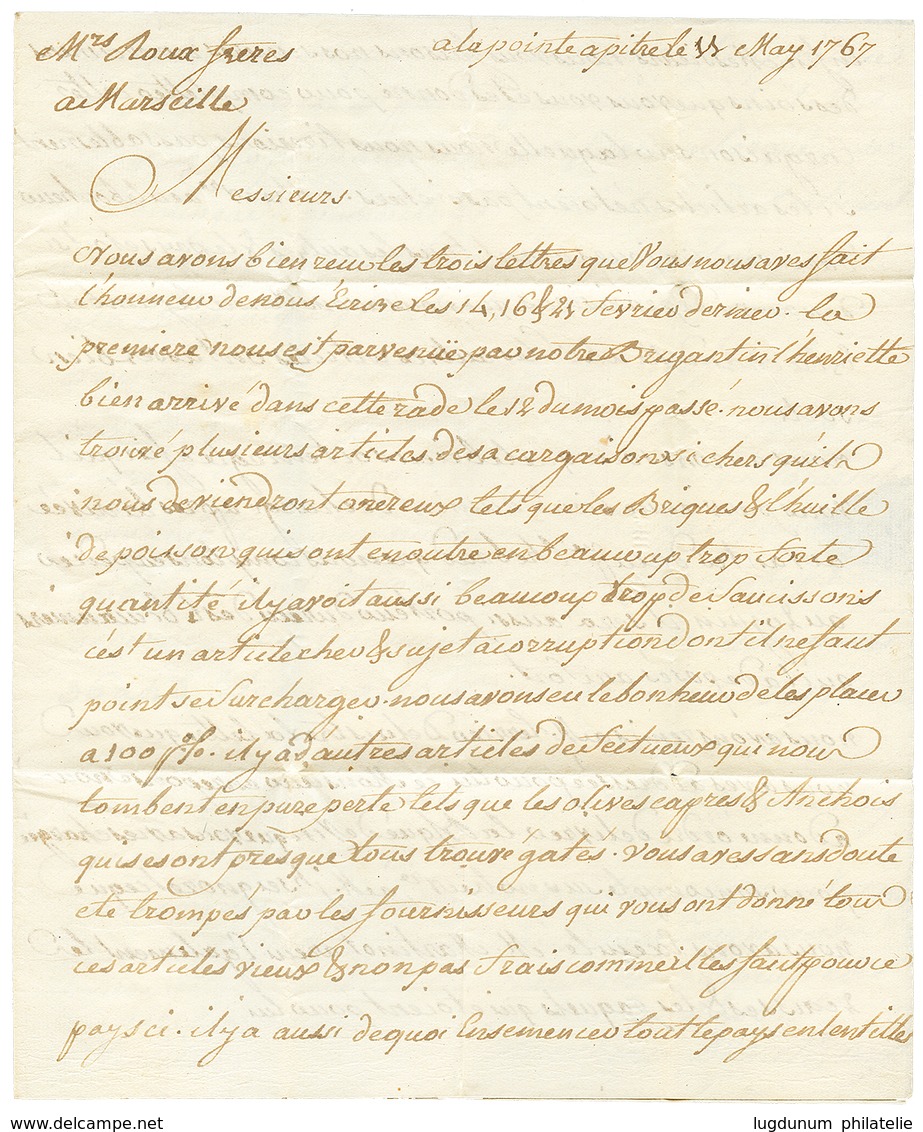 Mrs Roux freres
a la pointe a pitre le 11 May 1767
a Marseille
Messieurs
Nous avons bien reçu les trois lettres que Vous nous aves fait
l'honneur de nous Ecrire les 14, 16 & 21 fevrier dernier. la
premiere nous est parvenüe par notre Brigantin l'henriette
bien arrivé dans cette rade le 12 du mois passé. nous avons
trouvé plusieurs articles de sa cargaison si chers qu'ils
nous deviendront onereux tels que les Briques & l'huille
de poisson qui sont en outre en beaucoup trop forte
quantité il y avoit aussi beaucoup trop de Saucissons
c'est un article cher & sujet a corruption dont il ne faut
point se Surcharger. nous avons eu le bonheur de les placer
a 100 p%. il y a d'autres articles defectueux qui nous
tombent en pure perte tels que les olives capres & Anchois
qui se sont presque tous trouvé gatés. vous aves sans doute
eté trompés par les fournisseurs qui vous ont donné tous
ces articles vieux & non pas frais comme il les faut pour ce
pays ci. il y a aussi de quoi Ensemencer tout le pays en lentilles
delcampe.net
lugdunum philatelie